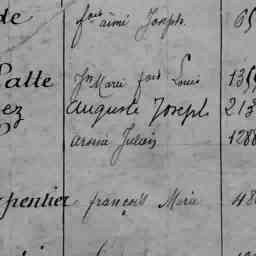 de fois aimé Joseph 65
Latte Jn Marie fois Louis 135
ez auguste Joseph 213
arsène Julien 1288
rpentier françois Marie 48